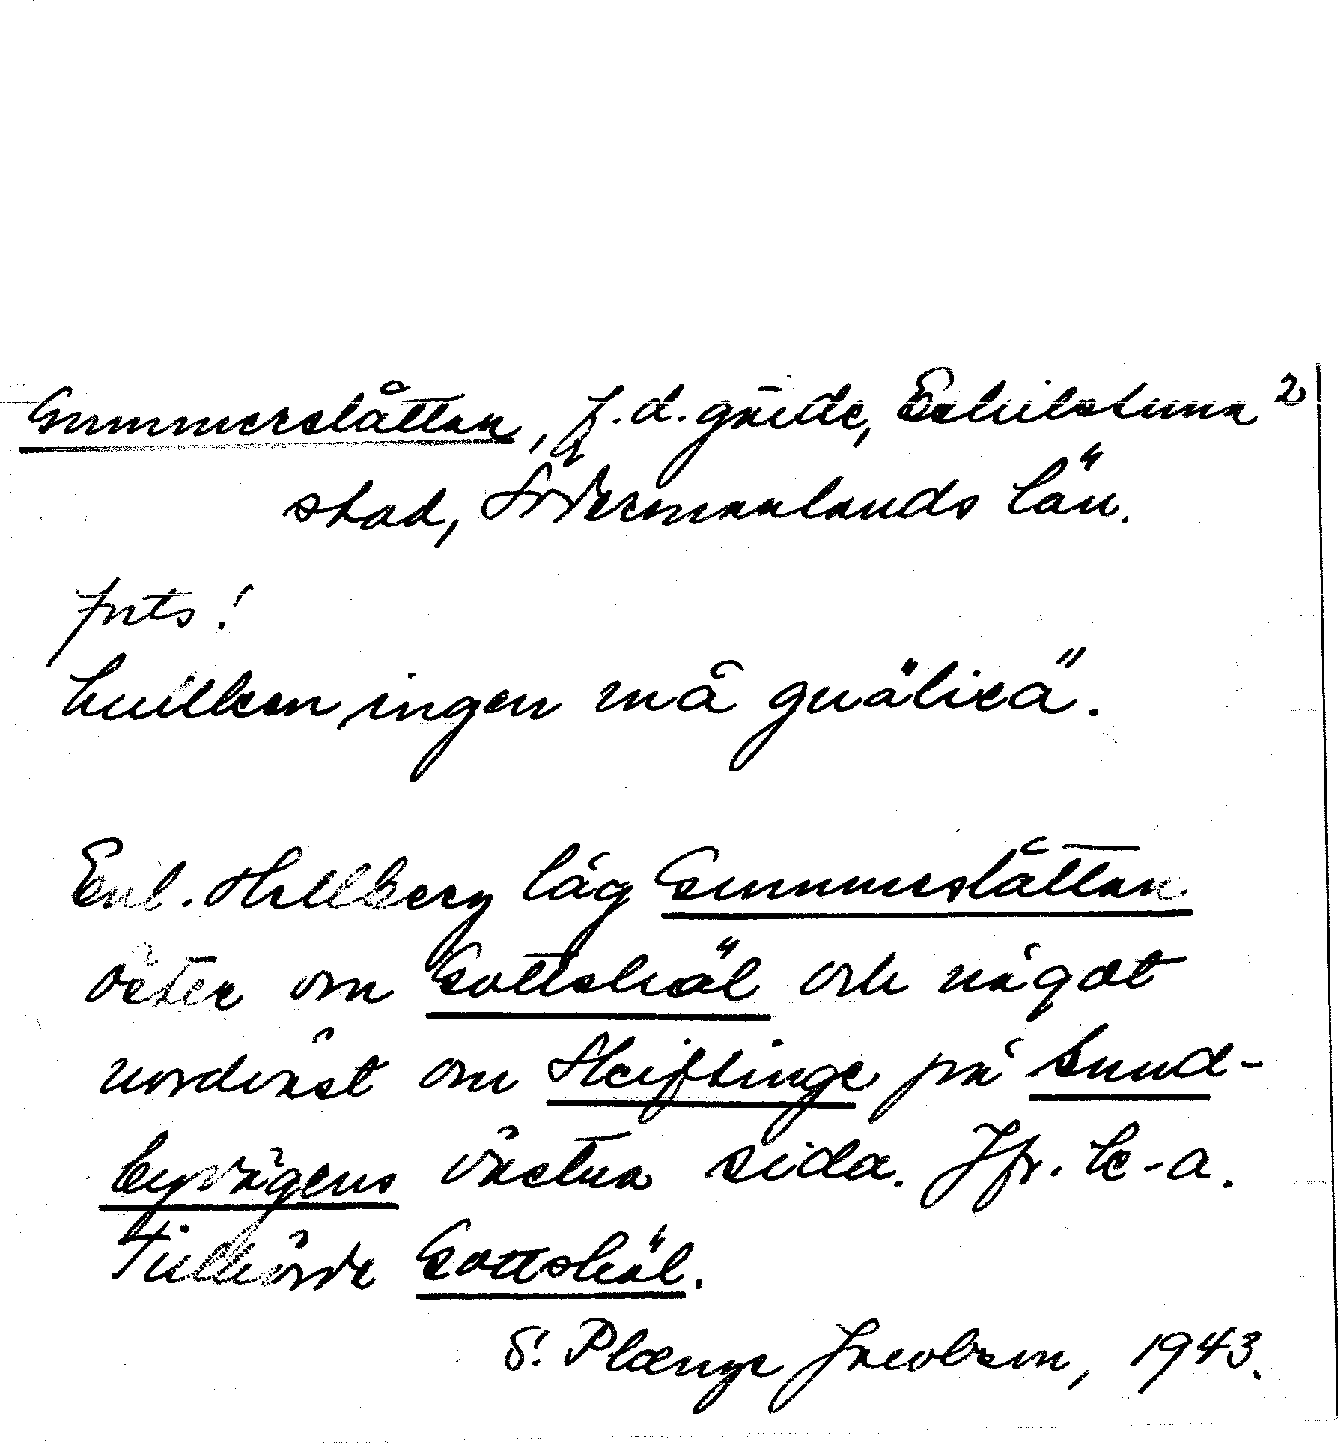 Gummerslåttan, f.d. gärde, Eskilstuna 2
stad, Södermanlands län.
forts!
huilken ingen må guälieä".
Enl. Hellberg låg Gummerslåttan
öster om Gottskäl och något
nordväst om Skiftinge på Sund-
byvägens västra sida. Jfr. k-a.
Tillhörde Gottskäl.
S. Plænge Jacobson, 1943.